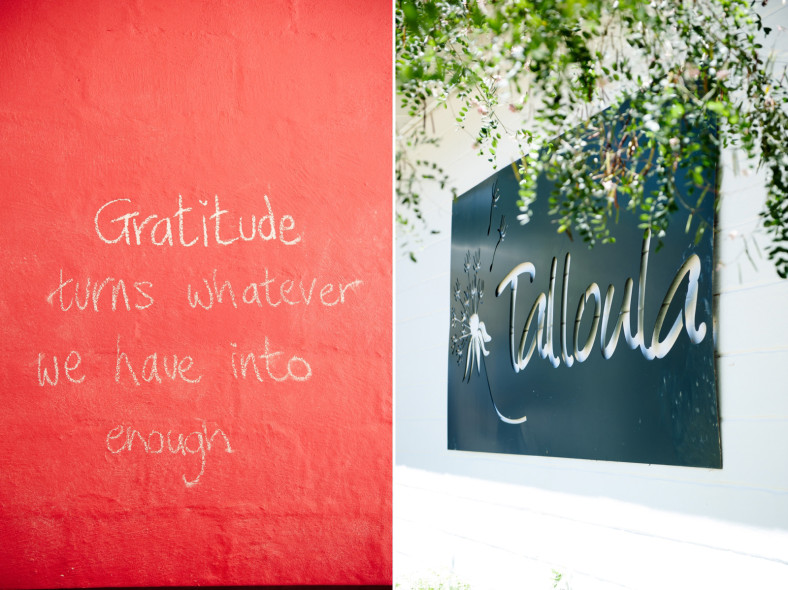 Gratitude
turns whatever
we have into
enough
Talloula